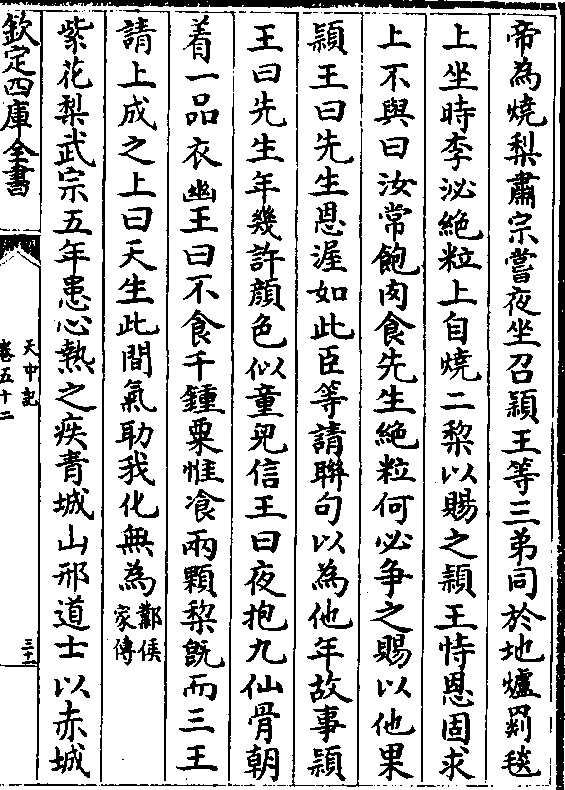 帝為燒梨肅宗嘗夜坐召潁王等三弟同於地爐罽毯
上坐時李泌絶粒上自燒二棃以賜之潁王恃恩固求
上不與曰汝常飽肉食先生絶粒何必争之賜以他果
潁王曰先生恩渥如此臣等請聯句以為他年故事潁
王曰先生年幾許顔色似童兒信王曰夜抱九仙骨朝
着一品衣幽王曰不食千鍾粟惟飡兩顆棃旣而三王
請上成之上曰天生此間氣助我化無為鄴侯家傳
紫花梨武宗五年患心熱之疾青城山邢道士以赤城
欽定四庫全書
天中記
卷五十二
三十一